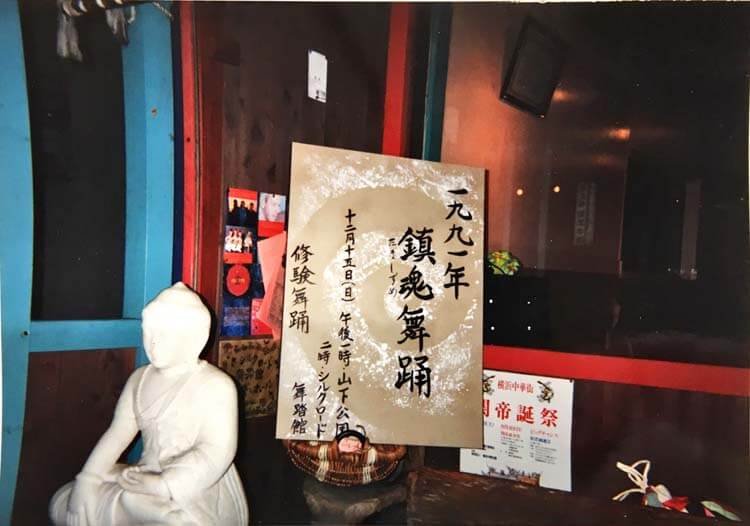 一九九一年
鎮魂舞踊
たましずめ
十二月十五日(日) 午後一時・山下公園
二時・シルクロード
修験舞踊 舞踏館
横浜中華街
関帝誕祭